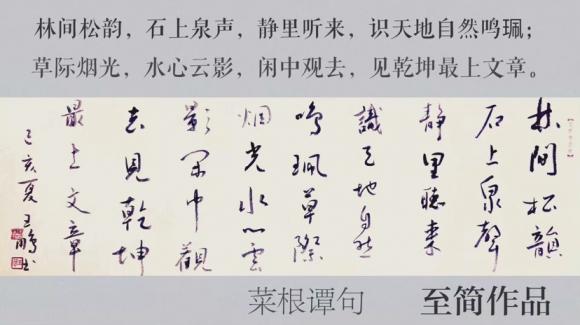 林间松韵，石上泉声，静里听来，识天地自然鸣珮；
草际烟光，水心云影，闲中观去，见乾坤最上文章。
林間松韻
石上泉聲
静里聽来
識天地自然
鳴珮草際
烟光水心雲
影閑中觀
去見乾坤
最上文章
己亥夏王鹏书
菜根谭句 至简作品